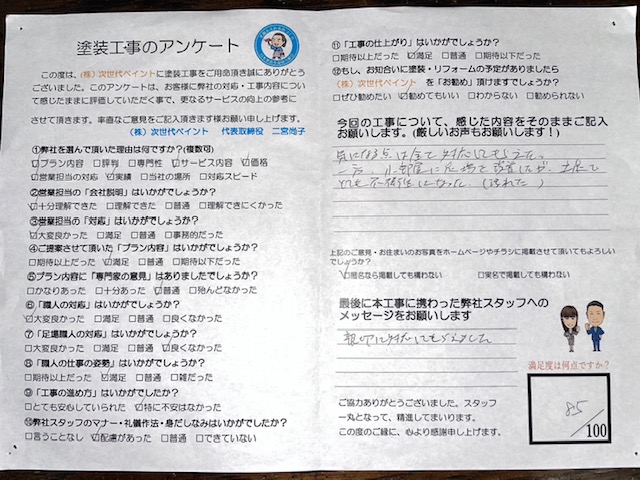 塗装工事のアンケート
この度は、(株)次世代ペイントに塗装工事をご用命頂き誠にありがとう
ございました。このアンケートは、お客様に弊社の対応・工事内容につい
て感じたままに評価していただく事で、更なるサービスの向上の参考に
させて頂きます。率直なご意見をご記入頂きます様お願い申し上げます。
(株)次世代ペイント 代表取締役 二宮尚子
①弊社を選んで頂いた理由は何ですか?(複数可)
☑プラン内容 □評判 □専門性 ☑サービス内容 ☑価格
☑営業担当の対応 ☑実績 □当社の場所 □対応スピード
②営業担当の「会社説明」はいかがでしょうか?
☑十分理解できた □理解できた □普通 □理解できにくかった
③営業担当の「対応」はいかがでしょうか?
☑大変良かった □満足 □普通 □事務的だった
④ご提案させて頂いた「プラン内容」はいかがでしょうか?
□期待以上だった ☑満足 □普通 □期待以下だった
⑤プラン内容に「専門家の意見」はありましたでしょうか?
□かなりあった □十分あった ☑普通 □殆んどなかった
⑥「職人の対応」はいかがでしょうか?
☑大変良かった □満足 □普通 □良くなかった
⑦「足場職人の対応」はいかがでしょうか?
□大変良かった □満足 □普通 ☑良くなかった
⑧「職人の仕事の姿勢」はいかがでしょうか?
□期待以上だった ☑満足 □普通 □雑だった
⑨「工事の進め方」はいかがでしたか?
□とても安心していられた ☑特に不安はなかった
⑩弊社スタッフのマナー・礼儀作法・身だしなみはいかがでしたか?
□言うことなし ☑配慮があった □普通 □できていない
⑪「工事の仕上がり」はいかがでしょうか?
□期待以上だった ☑満足 □普通 □期待以下だった
⑫もし、お知合いに塗装・リフォームの予定がありましたら
(株)次世代ペイント を「お勧め」頂けますでしょうか?
□ぜひ勧めたい ☑勧めてもいい □わからない □勧められない
今回の工事について、感じた内容をそのままご記入
お願いします。(厳しいお声もお願いします!)
気になる点は全て対応してもらえた。
とても不愉快になった。
上記のご意見・お住まいのお写真をホームページやチラシに掲載させて頂いてもよろしい
でしょうか?
☑匿名なら掲載しても構わない □実名で掲載しても構わない
最後に本工事に携わった弊社スタッフへの
メッセージをお願いします
親切に対応してもらえました
満足度は何点ですか?
85
/100
ご協力ありがとうございました、スタッフ
一丸となって、精進してまいります。
この度のご縁に、心より感謝申し上げます。